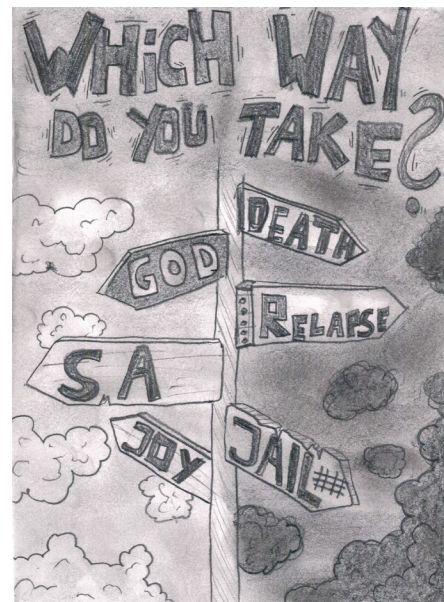 WHiCH WAY
DO YOU TAKE?
DEATH
GOD
RELAPSE
S A
JOY
JAIL